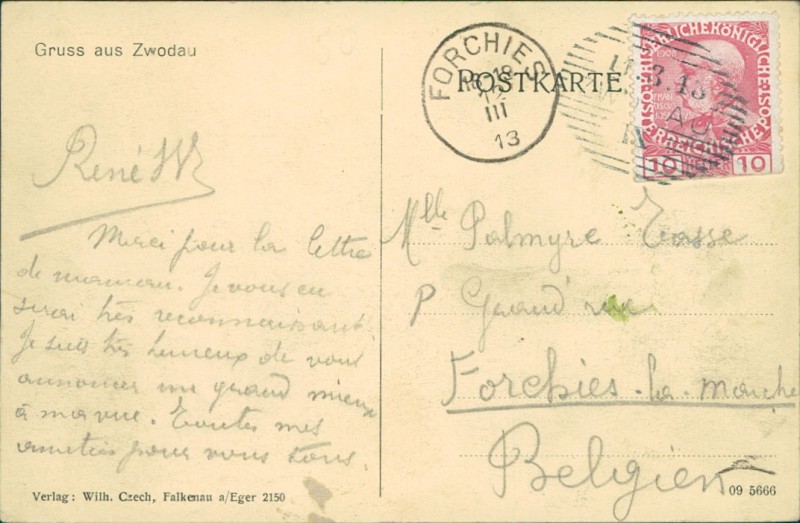 Gruss aus Zwodau
POSTKARTE
FORCHIES
18-19
12
III
13
10 10
René
Merci pour la lettre
de maman. Je vous en
serai très reconnaissant.
Je suis très heureux de vous
annoncer un grand mieux
à ma vue. Toutes mes
amitiés pour vous tous.
Mlle Palmyre Tasse
Grand rue
Forchies-la-marche
Belgien
Verlag: Wilh. Czech, Falkenau a/Eger 2150
09 5666